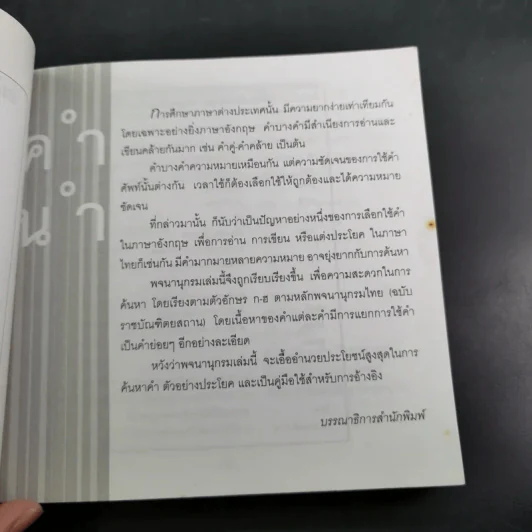 คำ
นำ
การศึกษาภาษาต่างประเทศนั้น มีความยากง่ายเท่าเทียมกัน
โดยเฉพาะอย่างยิ่งภาษาอังกฤษ คำบางคำมีสำเนียงการอ่านและ
เขียนคล้ายกันมาก เช่น คำคู่-คำคล้าย เป็นต้น
คำบางคำความหมายเหมือนกัน แต่ความชัดเจนของการใช้คำ
ศัพท์นั้นต่างกัน เวลาใช้ก็ต้องเลือกใช้ให้ถูกต้องและได้ความหมาย
ชัดเจน
ที่กล่าวมานั้น ก็นับว่าเป็นปัญหาอย่างหนึ่งของการเลือกใช้คำ
ในภาษาอังกฤษ เพื่อการอ่าน การเขียน หรือแต่งประโยค ในภาษา
ไทยก็เช่นกัน มีคำมากมายหลายความหมาย อาจยุ่งยากกับการค้นหา
พจนานุกรมเล่มนี้จึงถูกเรียบเรียงขึ้น เพื่อความสะดวกในการ
ค้นหา โดยเรียงตามตัวอักษร ก-ฮ ตามหลักพจนานุกรมไทย (ฉบับ
ราชบัณฑิตยสถาน) โดยเนื้อหาของคำแต่ละคำมีการแยกการใช้คำ
เป็นคำย่อยๆ อีกอย่างละเอียด
หวังว่าพจนานุกรมเล่มนี้ จะเอื้ออำนวยประโยชน์สูงสุดในการ
ค้นหาคำ ตัวอย่างประโยค และเป็นคู่มือใช้สำหรับการอ้างอิง
บรรณาธิการสำนักพิมพ์